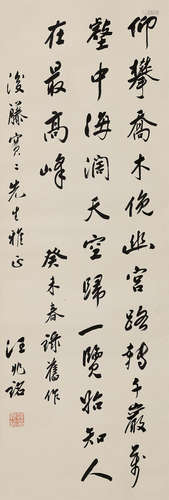 仰攀喬木俛幽宮路轉千巖萬
壑中海闊天空歸一覽始知人
在最高峰 癸未春錄舊作
後藤寶二先生雅正
汪兆銘